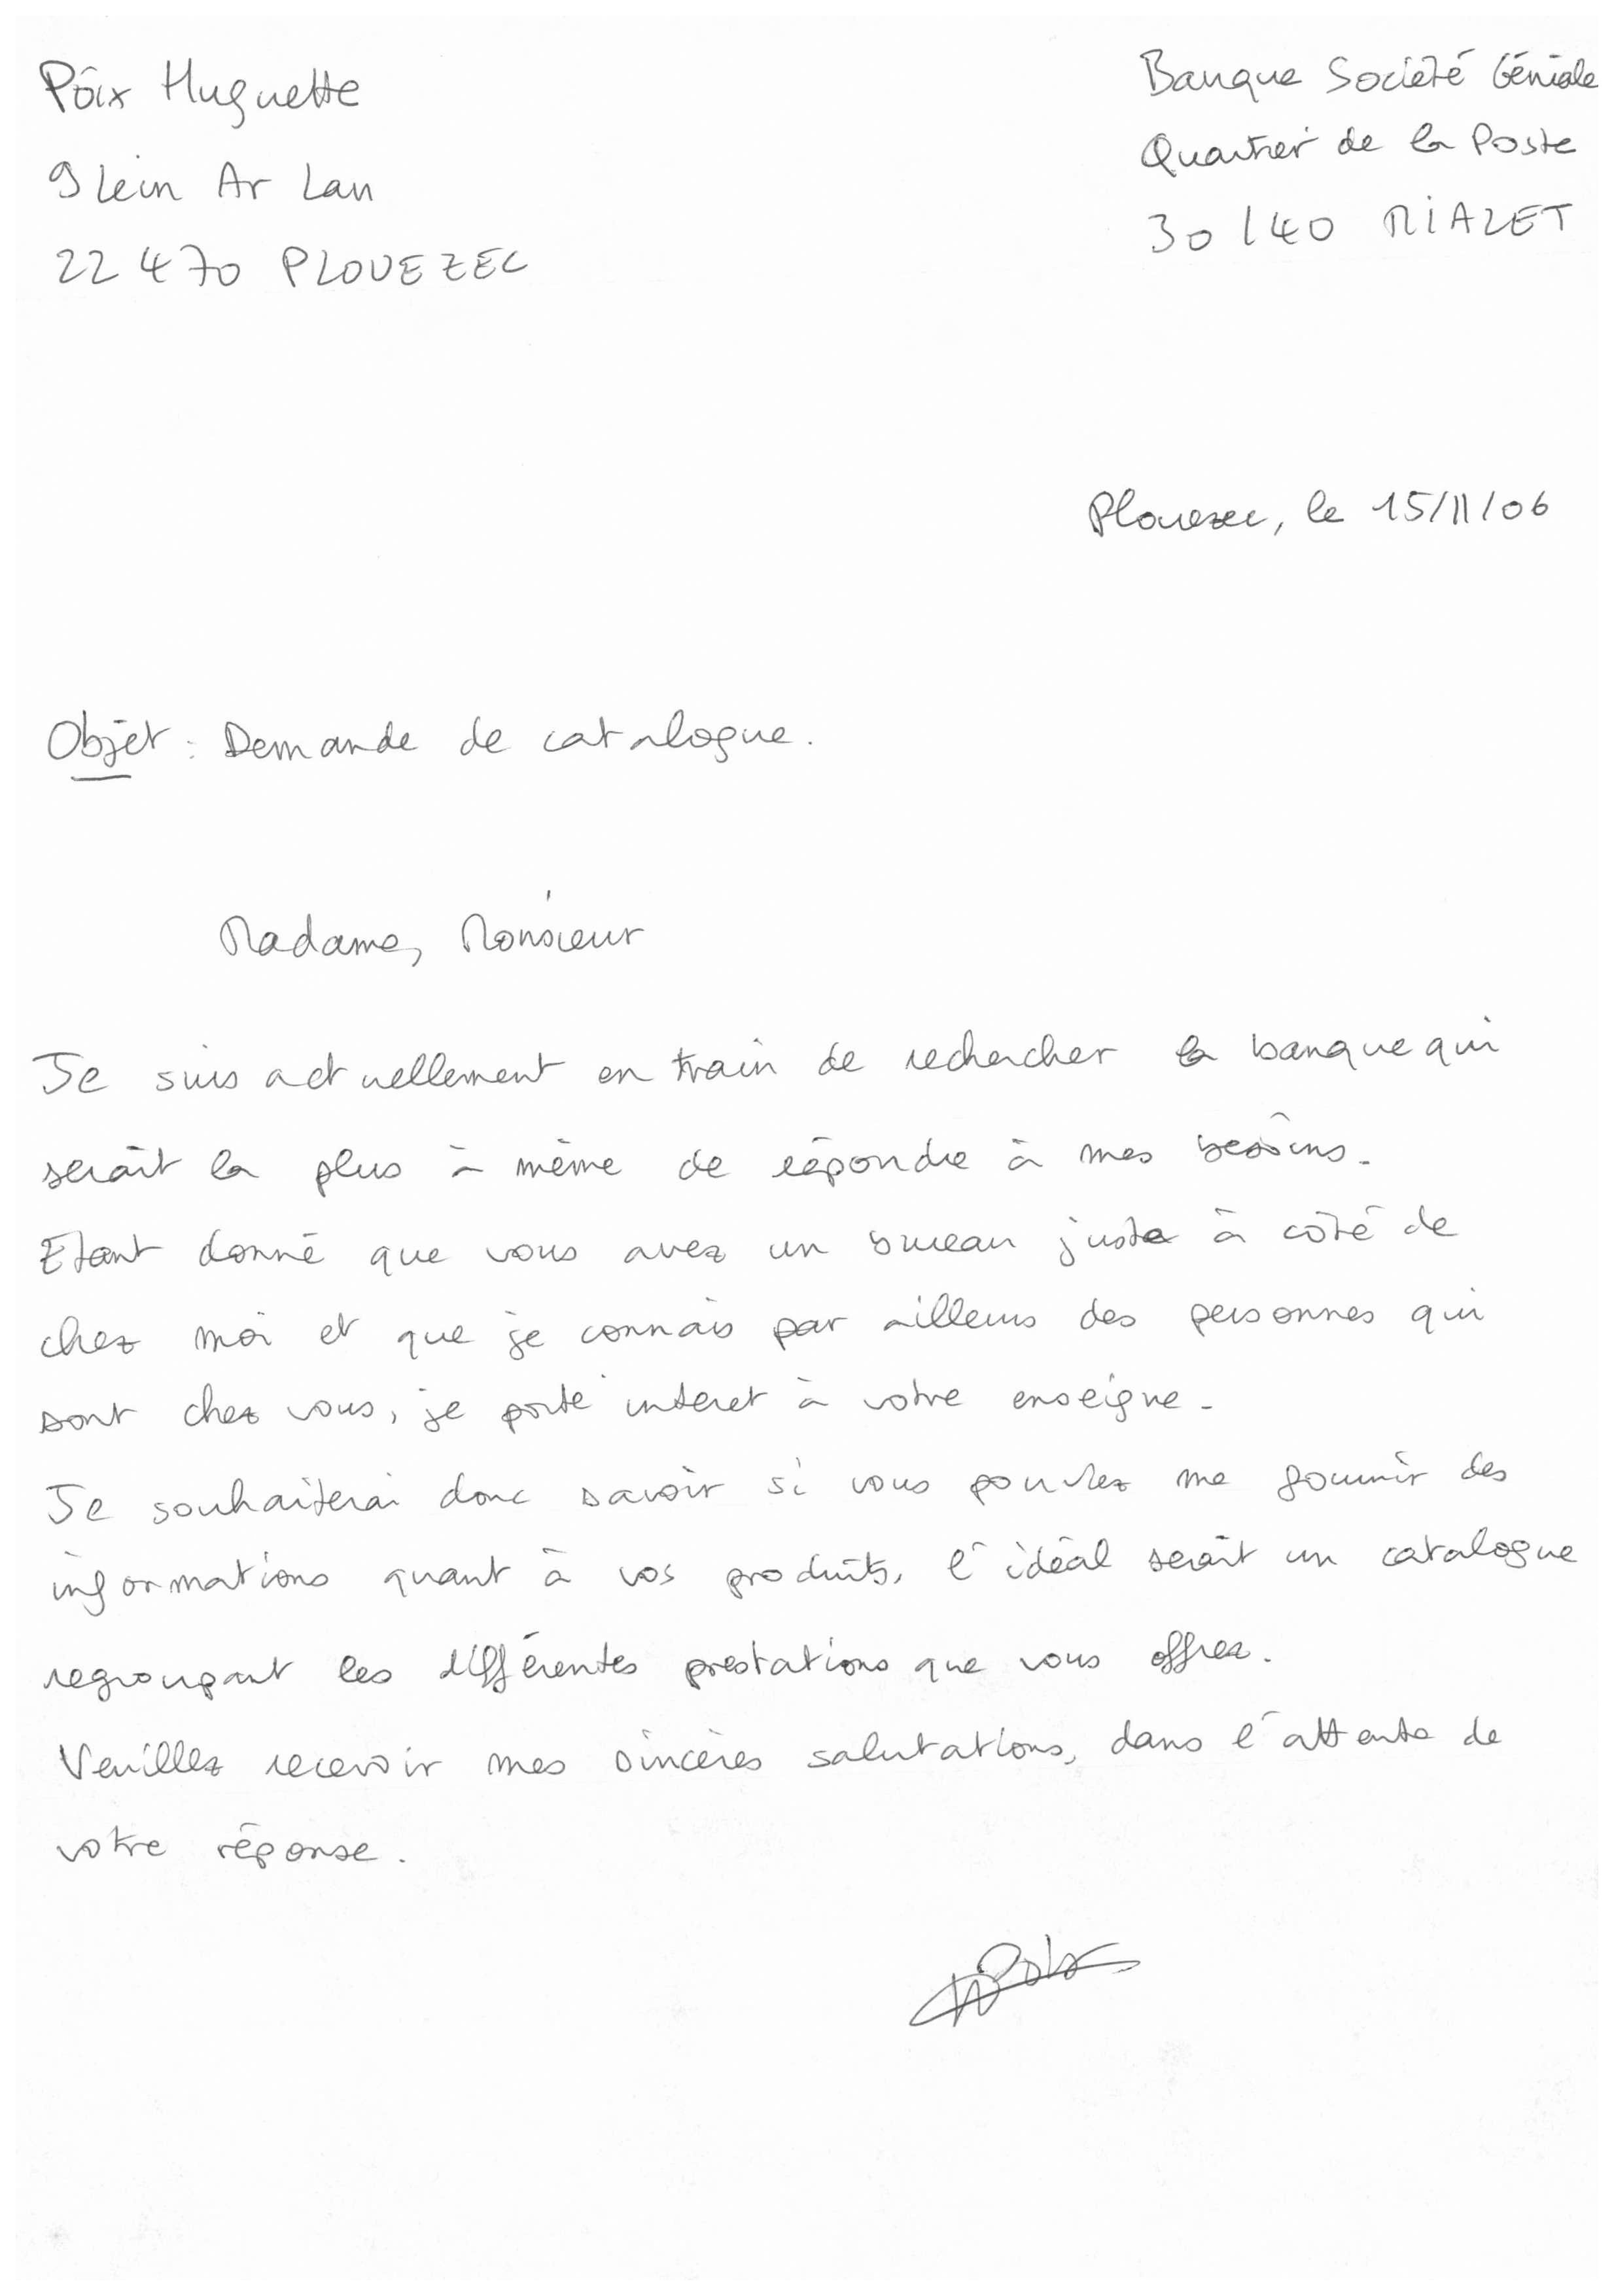 Poix Huguette
9 Lein Ar Lan
22 470 PLOUEZEC
Banque Société Géniale
Quartier de la Poste
30 140 MIALET
Plouezec, le 15/11/06
Objet : Demande de catalogue.
Madame, Monsieur
Je suis actuellement en train de rechercher la banque qui
serait la plus à même de répondre à mes besoins.
Etant donné que vous avez un bureau juste à côté de
chez moi et que je connais par ailleurs des personnes qui
sont chez vous, je porte interet à votre enseigne.
Je souhaiterai donc savoir si vous pouviez me fournir des
informations quant à vos produits, l'idéal serait un catalogue
regroupant les différentes prestations que vous offrez.
Veuillez recevoir mes sincères salutations, dans l'attente de
votre réponse.